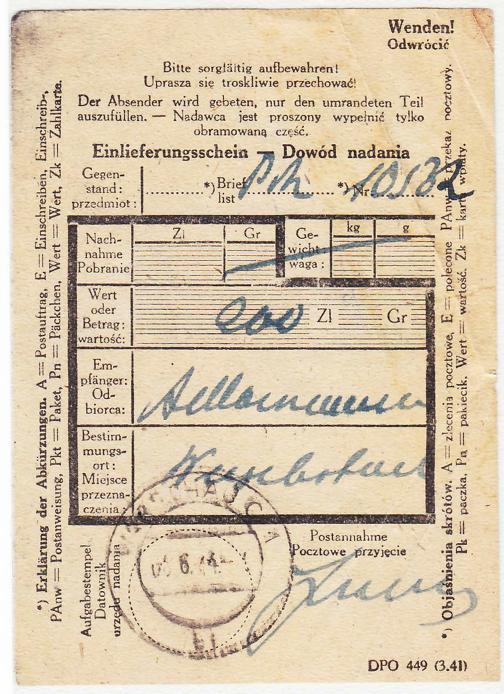 Wenden!
Odwrócić
Bitte sorgfältig aufbewahren!
Uprasza się troskliwie przechować!
Der Absender wird gebeten, nur den umrandeten Teil
auszufüllen. — Nadawca jest proszony wypełnić tylko
obramowaną część.
Einlieferungsschein — Dowód nadania
Gegen-
stand:
przedmiot:
*) Brief
list
*) Nr.
Nach-
nahme
Pobranie
Zl Gr
Ge-
wicht
waga:
kg g
Wert
oder
Betrag:
wartość:
200 Zl Gr
Em-
pfänger:
Od-
biorca:
Bestim-
mungs-
ort:
Miejsce
przezna-
czenia:
Aufgabestempel
Datownik
urzędu nadania
Postannahme
Pocztowe przyjęcie
DPO 449 (3.41)
*) Erklärung der Abkürzungen. A = Postauftrag, E = Einschreiben, Einschreib-,
PAnw = Postanweisung, Pkt = Paket, Pn = Päckchen, Wert = Wert, Zk = Zahlkarte.
*) Objaśnienia skrótów. A = zlecenia pocztowe, E = polecone PAnw = przekaz pocztowy.
Pk = paczka, Pa = pakiecik, Wert = wartość. Zk = karta wpłaty.